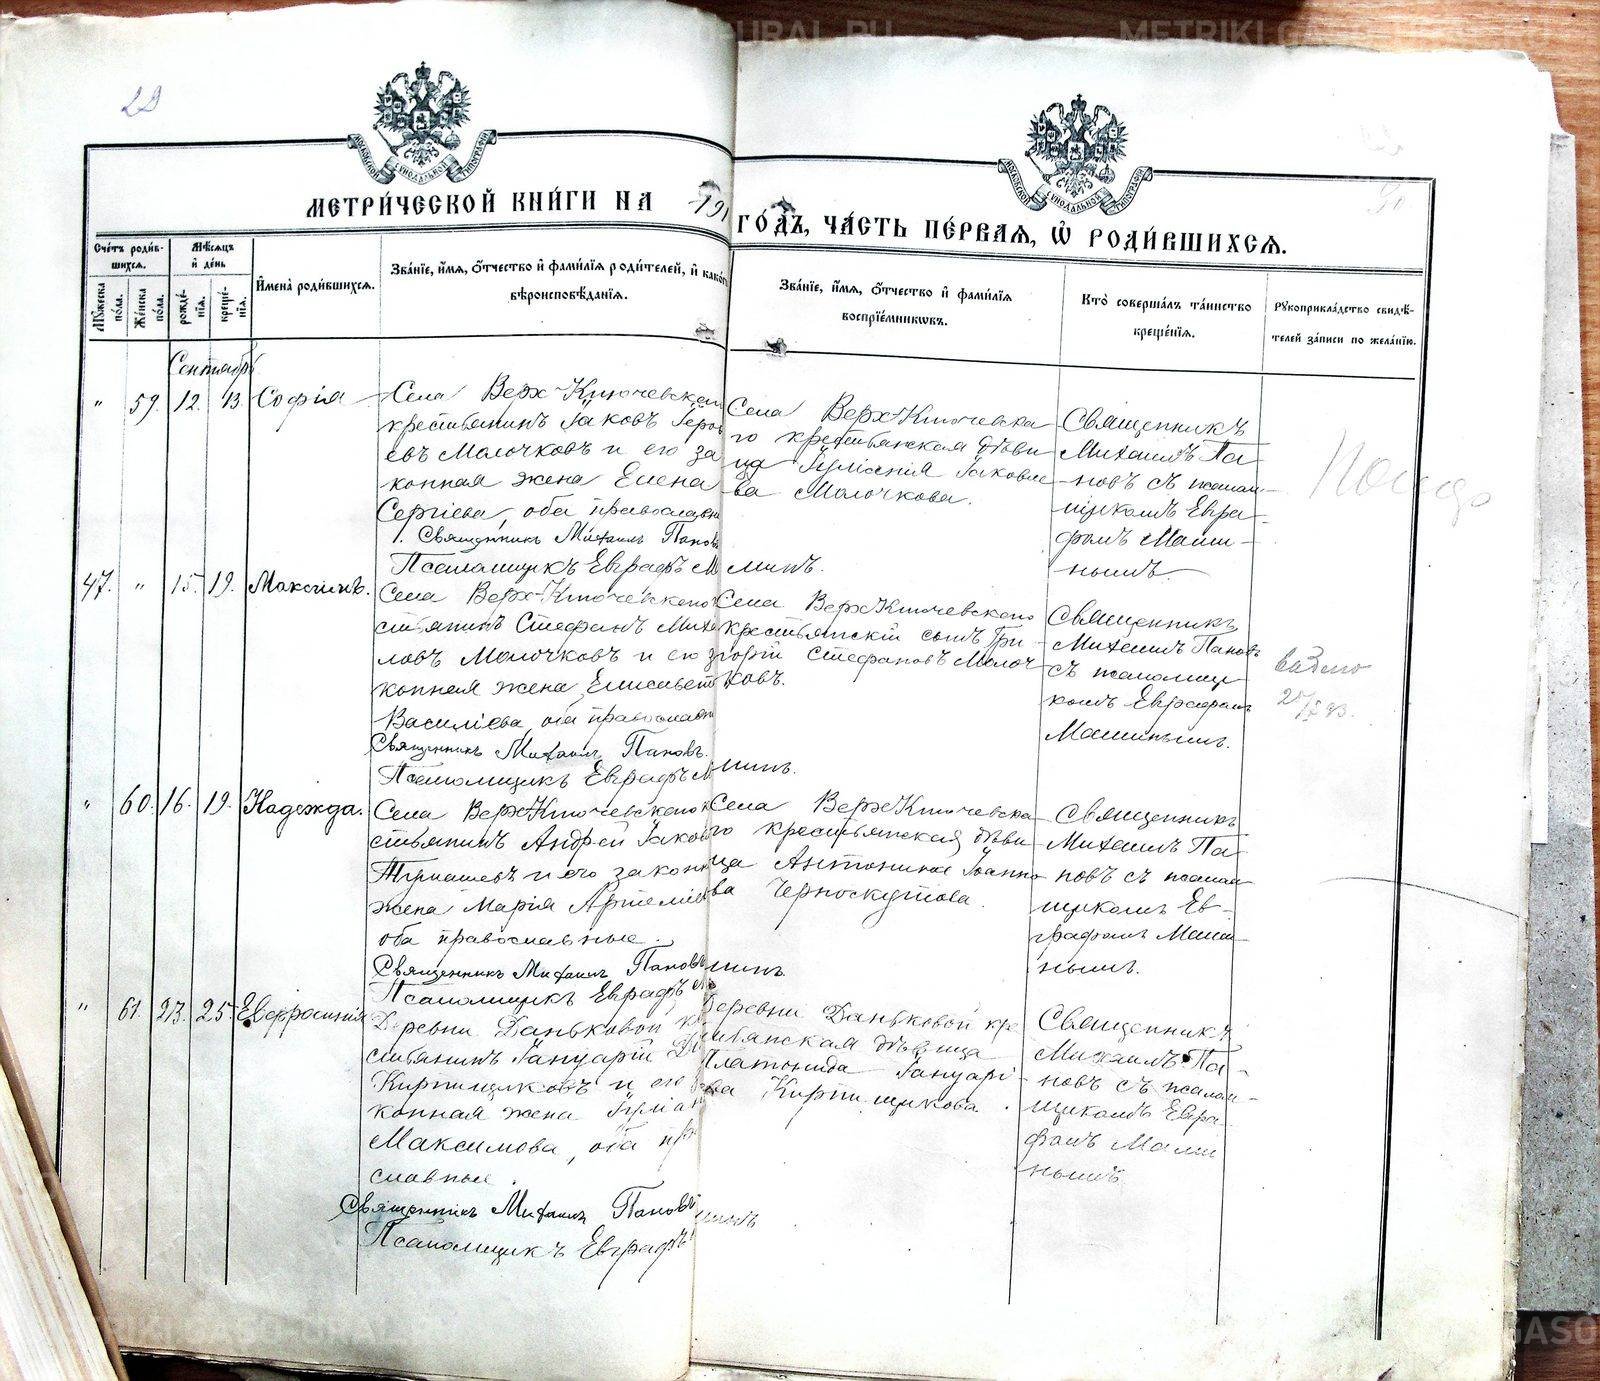 METRIKI.GASO-URAL.RU
29
МОСКОВСКОЙ СѴНОДАЛЬНОЙ ТИПОГРАФІИ
МОСКОВСКОЙ СѴНОДАЛЬНОЙ ТИПОГРАФІИ
МЕТРИ́ЧЕСКОЙ КНИ́ГИ НА 191
ГО́ДЪ, ЧА́СТЬ ПЕ́РВАЯ, Ѡ РОДИ́ВШИХСЯ.
Сче́тъ роди́в-
шихся.
Мѣ́сяцъ
и де́нь
Мꙋ́жеска по́ла.
Же́нска по́ла.
рожде́-
нія.
креще́-
нія.
И́мена роди́вшихся.
Зва́ніе, и́мя, о́тчество и фами́лія роди́телей, и како́г
вѣроисповѣ́данія.
Зва́ніе, и́мя, о́тчество и фами́лія
воспріе́мниковъ.
Кто̀ соверша́лъ та́инство
креще́нія.
Рꙋкоприкла́дство свидѣ́-
телей за́писи по жела́нію.
Сентябрь
" 59. 12. 13. Софія
Села Верх-Ключевскаго
крестьянинъ Іаковъ
евъ Молочковъ и его за
конная жена Елена
Сергіева, оба православн
Священникъ Михаилъ Пановъ
Псаломщикъ Евграфъ М
Села Верх-Ключевска
го крестьянская дѣви
ца Іуліанія Іаковле
ва Молочкова.
минъ.
Священникъ
Михаилъ Па-
новъ съ псалом-
щикомъ Евгра-
фомъ Мами-
нымъ.
47. " 15. 19. Максимъ.
Села Верх-Ключевского
стьянинъ Стефанъ Миха
ловъ Молочковъ и его з
конная жена Елисавета
Василіева, оба православн
Священникъ Михаилъ Пановъ.
Псаломщикъ Евграфъ М
Села Верх Ключевского
крестьянскій сынъ Гри-
горій Стефановъ Молоч
ковъ.
минъ.
Священникъ
Михаилъ Пановъ
съ псаломщи
комъ Евграфомъ
Маминымъ.
" 60. 16. 19. Надежда.
Села Верх-Ключевского к
стьянинъ Андрей Іаков
и его законн
жена Марія Артеміев
оба православные.
Священникъ Михаилъ Пановъ
Псаломщикъ Евграфъ М
Села Верх Ключевска
го крестьянская дѣви
ца Антонина Іоанно
ва Черноскутова.
минъ
Священникъ
Михаилъ Па-
новъ съ псалом
щикомъ Ев-
графомъ Мами
нымъ.
" 61. 23. 25. Евфросинія
Деревни Даньковой к
стьянинъ Іануарій
Кирпищиковъ и его
конная жена Іуліан
Максимова, оба пр
славные.
Священникъ Михаилъ Пановъ
Псаломщикъ Евграфъ
Деревни Даньковой кре
стьянская дѣвица
Платонида Іануарі-
ева Кирпищикова.
минъ
Священникъ
Михаилъ Па-
новъ съ псалом-
щикомъ Евгра-
фомъ Мами
нымъ.